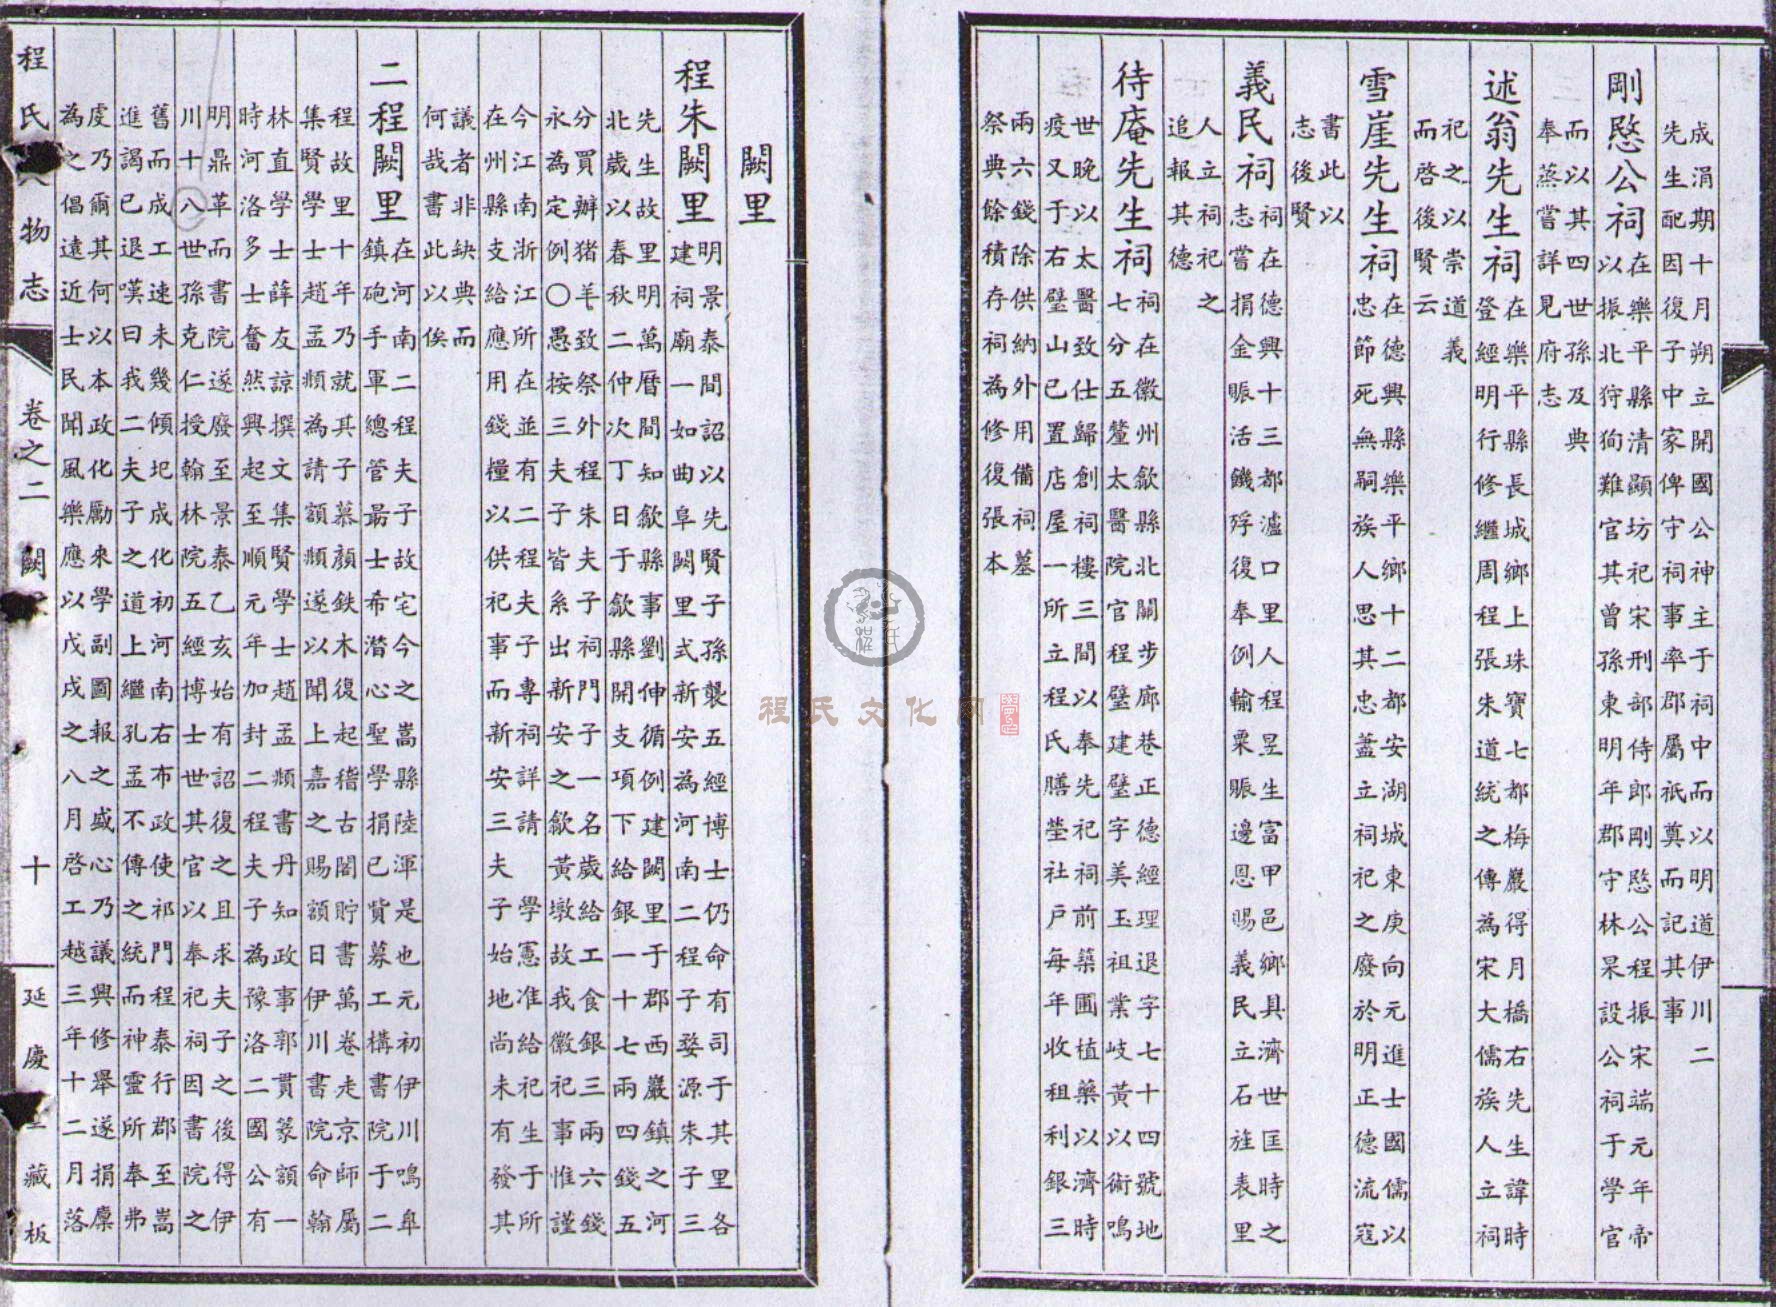 成涓期十月朔立開國公神主于祠中而以明道伊川二
先生配因復子中家俾守祠事率郡屬祇奠而記其事
剛愍公祠
在樂平縣清顯坊祀宋刑部侍郎剛愍公程振宋端元年帝
以振北狩狥難官其曾孫東明年郡守林杲設公祠于學官
而以其四世孫及典
奉蒸嘗詳見府志
述翁先生祠
在樂平縣長城鄉上珠寶七都梅巖得月橋右先生諱時
登經明行修繼周程張朱道統之傳為宋大儒族人立祠
祀之以崇道義
而啓後賢云
雪崖先生祠
在德興縣樂平鄉十二都安湖城東庚向元進士國儒以
忠節死無嗣族人思其忠蓋立祠祀之廢於明正德流寇
書此以
志後賢
義民祠
祠在德興十三都瀘口里人程昱生富甲邑鄉具濟世匡時之
志嘗捐金賑活饑殍復奉例輸粟賑邊恩賜義民立石旌表里
人立祠祀之
追報其德
待庵先生祠
祠在徽州歙縣北關步廊巷正德經理退字七十四號地
七分五釐太醫院官程璧建璧字美玉祖業岐黃以術鳴
世晚以太醫致仕歸創祠樓三間以奉先祀祠前築圃植藥以濟時
疫又于右璧山已置店屋一所立程氏膳塋社戶每年收租利銀三
兩六錢除供納外用備祠墓
祭典餘積存祠為修復張本
闕里
程朱闕里
明景泰間詔以先賢子孫襲五經博士仍命有司于其里各
建祠廟一如曲阜闕里式新安為河南二程子婺源朱子三
先生故里明萬曆間知歙縣事劉伸循例建闕里于郡西巖鎮之河
北歲以春秋二仲次丁日于歙縣開支項下給銀一十七兩四錢五
分買辦猪羊致祭外程朱夫子祠門子一名歲給工食銀三兩六錢
永為定例〇愚按三夫子皆系出新安之歙黃墩故我徽祀事惟謹
今江南浙江所在並有二程夫子專祠詳請學憲准給祀生于所
在州縣支給應用錢糧以供祀事而新安三夫子始地尚未有發其
議者非缺典而
何哉書此以俟
二程闕里
在河南二程夫子故宅今之嵩縣陸渾是也元初伊川鳴臯
鎮砲手軍總管最士希潛心聖學捐已貲募工構書院于二
程故里十年乃就其子慕顏鉄木復起稽古閣貯書萬卷走京師屬
集賢學士趙孟頫為請額頫遂以聞上嘉之賜額日伊川書院命翰
林直學士薛友諒撰文集賢學士趙孟頫書丹知政事郭貫篆額一
時河洛多士奮然興起至順元年加封二程夫子為豫洛二國公有
明鼎革而書院遂廢至景泰乙亥始有詔復之且求夫子之後得伊
川十八世孫克仁授翰林院五經博士世其官以奉祀祠因書院之
舊而成工速未幾傾圮成化初河南右布政使祁門程泰行郡至嵩
進謁已退嘆曰我二夫子之道上繼孔孟不傳之統而神靈所奉弗
虔乃爾其何以本政化勵來學副圖報之盛心乃議興修舉遂捐廩
為之倡遠近士民聞風樂應以戊戌之八月啓工越三年十二月落
程氏人物志
卷之二
闕
十
延慶堂藏板
程氏文化网